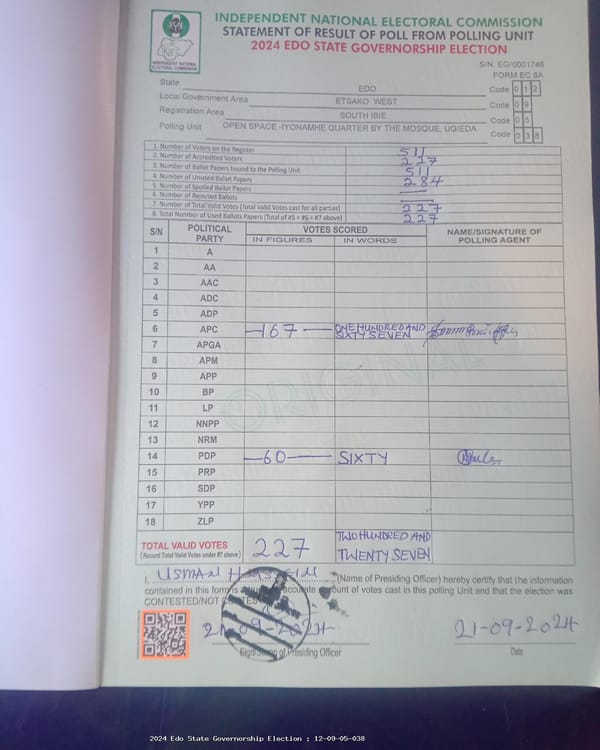 INDEPENDENT NATIONAL ELECTORAL COMMISSION
STATEMENT OF RESULT OF POLL FROM POLLING UNIT
2024 EDO STATE GOVERNORSHIP ELECTION
INDEPENDENT NATIONAL ELECTORAL COMMISSION
S/N EG/0001746
FORM EC 8A
State EDO Code 0 1 2
Local Government Area ETSAKO WEST Code 0 9
Registration Area SOUTH IBIE Code 0 5
Polling Unit OPEN SPACE -IYONAMHE QUARTER BY THE MOSQUE, UGIEDA Code 0 3 8
1. Number of Voters on the Register 511
2. Number of Accredited Voters 227
3. Number of Ballot Papers Issued to the Polling Unit 511
4. Number of Unused Ballot Papers 284
5. Number of Spoiled Ballot Papers
6. Number of Rejected Ballots
7. Number of Total Valid Votes (Total Valid Votes cast for all parties) 227
8. Total Number of Used Ballots Papers (Total of #5 + #6 + #7 above) 227
S/N POLITICAL PARTY VOTES SCORED NAME/SIGNATURE OF POLLING AGENT
IN FIGURES IN WORDS
1 A
2 AA
3 AAC
4 ADC
5 ADP
6 APC 167 ONE HUNDRED AND SIXTY SEVEN
7 APGA
8 APM
9 APP
10 BP
11 LP
12 NNPP
13 NRM
14 PDP 60 SIXTY
15 PRP
16 SDP
17 YPP
18 ZLP
ORIGINAL
TOTAL VALID VOTES 227 TWO HUNDRED AND
(Record Total Valid Votes under #7 above) TWENTY SEVEN
I, USMAN (Name of Presiding Officer) hereby certify that the information
contained in this form is accurate account of votes cast in this polling Unit and that the election was
CONTESTED/NOT
21-09-2024 21-09-2024
Sign/Stamp of Presiding Officer Date
2024 Edo State Governorship Election : 12-09-05-038